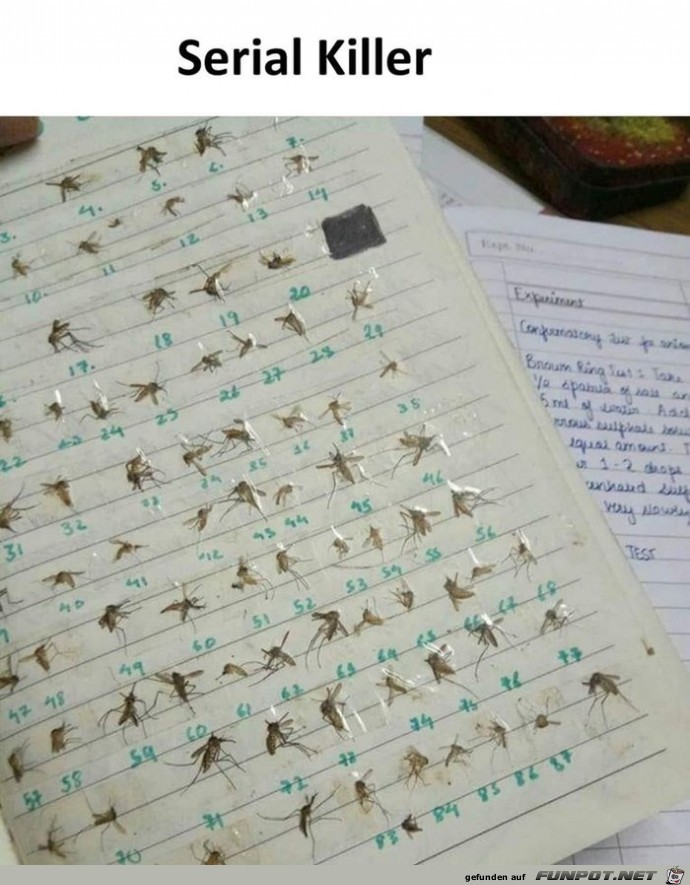 Serial Killer
4. 5. 6. 7.
3.
10. 11 12 13 14
17. 18 19 20
22 23 24 25 26 27 28 29
31 32 33 34 35 36 37 38
40 41 42 43 44 45 46
47 48 49 50 51 52 53 54 55 56
57 58 59 60 61 62 63 64 65 66 67 68
70 71 72 73 74 75 76 77
83 84 85 86 87
Expt. No.
Experiment
Confirmatory
Brown Ring Test : Take
1/2 spatula of salt
5 ml of water. Add
sulphate
equal amount.
1-2 drops
very slowly
TEST
gefunden auf FUNPOT.NET